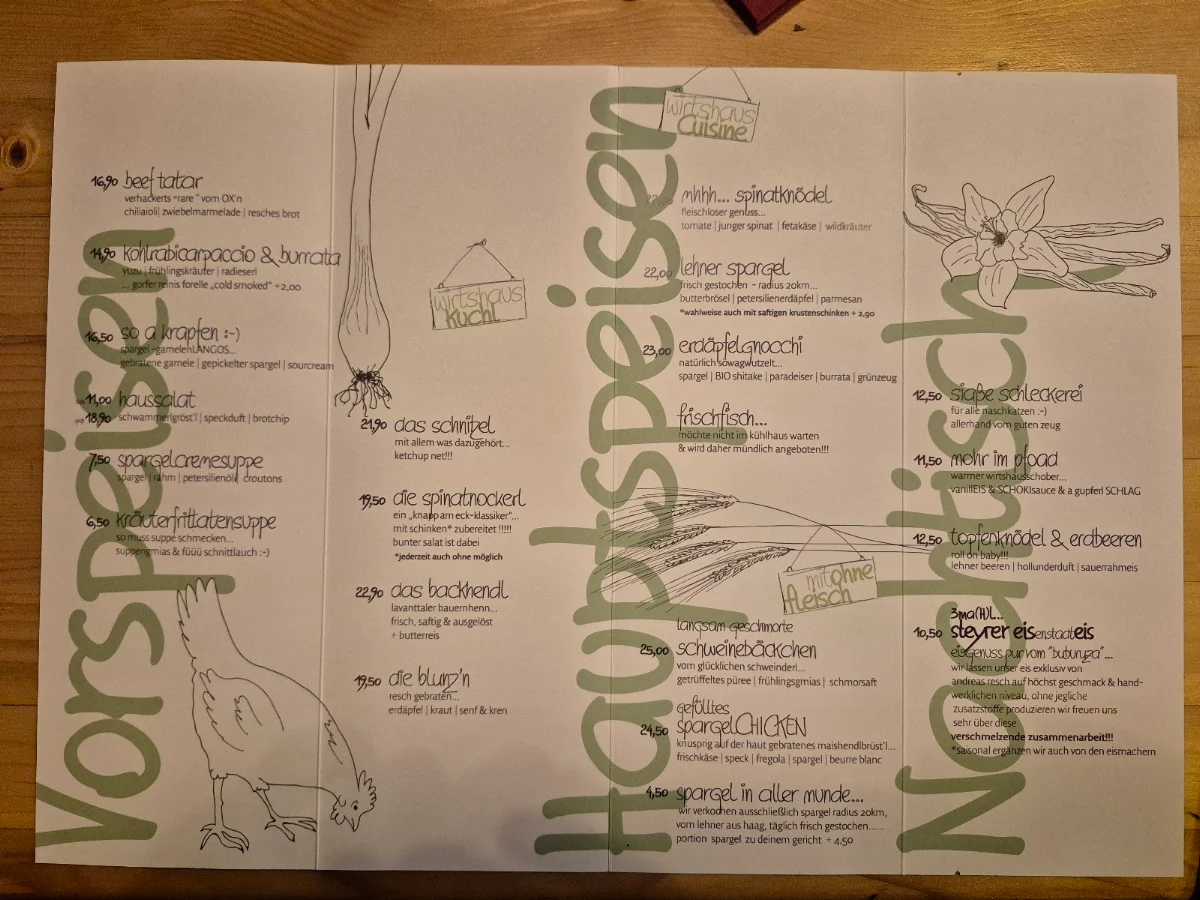 Vorspeisen
16,90 beef tatar
verhackerts "rare" vom OX'n
chiliaioli| zwiebelmarmelade | resches brot
14,90 kohlrabicarpaccio & burrata
yuzu | frühlingskräuter | radieserl
... gorfer reinis forelle „cold smoked" +2,00
16,50 so a krapfen :-)
spargel -garnelenLANGOS...
gebratene garnele | gepickelter spargel | sourcream
11,00 haussalat
18,90 schwammerlgröst'l | speckduft | brotchip
7,50 spargelcremesuppe
spargel | rahm | petersilienöl | croutons
6,50 kräuterfrittatensuppe
so muss suppe schmecken...
suppengmias & füüü schnittlauch :-)
wirtshaus
kuchl
21,90 das schnitzel
mit allem was dazugehört...
ketchup net!!!
19,50 die spinatnockerl
ein „knapp am eck-klassiker"...
mit schinken* zubereitet !!!!!
bunter salat ist dabei
*jederzeit auch ohne möglich
22,90 das backhendl
lavanttaler bauernhenn...
frisch, saftig & ausgelöst
+ butterreis
19,50 die blunz'n
resch gebraten...
erdäpfel | kraut | senf & kren
Hauptspeisen
wirtshaus
Cuisine
mhhh... spinatknödel
fleischloser genuss...
tomate | junger spinat | fetakäse | wildkräuter
22,00 lehner spargel
frisch gestochen - radius 20km...
butterbrösel | petersilienerdäpfel | parmesan
*wahlweise auch mit saftigen krustenschinken + 2,90
23,00 erdäpfelgnocchi
natürlich sowagwutzelt...
spargel | BIO shitake | paradeiser | burrata | grünzeug
frischfisch...
möchte nicht im kühlhaus warten
& wird daher mündlich angeboten!!!
mitohne
fleisch
langsam geschmorte
25,00 schweinebäckchen
vom glücklichen schweinderl...
getrüffeltes püree | frühlingsgmias | schmorsaft
gefülltes
24,50 spargelCHICKEN
knusprig auf der haut gebratenes maishendlbrüst'l...
frischkäse | speck | fregola | spargel | beurre blanc
4,50 spargel in aller munde...
wir verkochen ausschließlich spargel radius 20km,
vom lehner aus haag, täglich frisch gestochen......
portion spargel zu deinem gericht + 4,50
Nachtisch
12,50 siaße schleckerei
für alle naschkatzen :-)
allerhand vom guten zeug
11,50 mohr im pfoad
warmer wirtshausschober...
vanillEIS & SCHOKIsauce & a gupferl SCHLAG
12,50 topfenknödel & erdbeeren
roll on baby!!!
lehner beeren | hollunderduft | sauerrahmeis
3ma(H)L...
10,50 steyrer eisenstadteis
eisgenuss pur vom "bubunza"...
wir lassen unser eis exklusiv von
andreas resch auf höchst geschmack & hand-
werklichen niveau, ohne jegliche
zusatzstoffe produzieren wir freuen uns
sehr über diese
verschmelzende zusammenarbeit!!!
*saisonal ergänzen wir auch von den eismachern